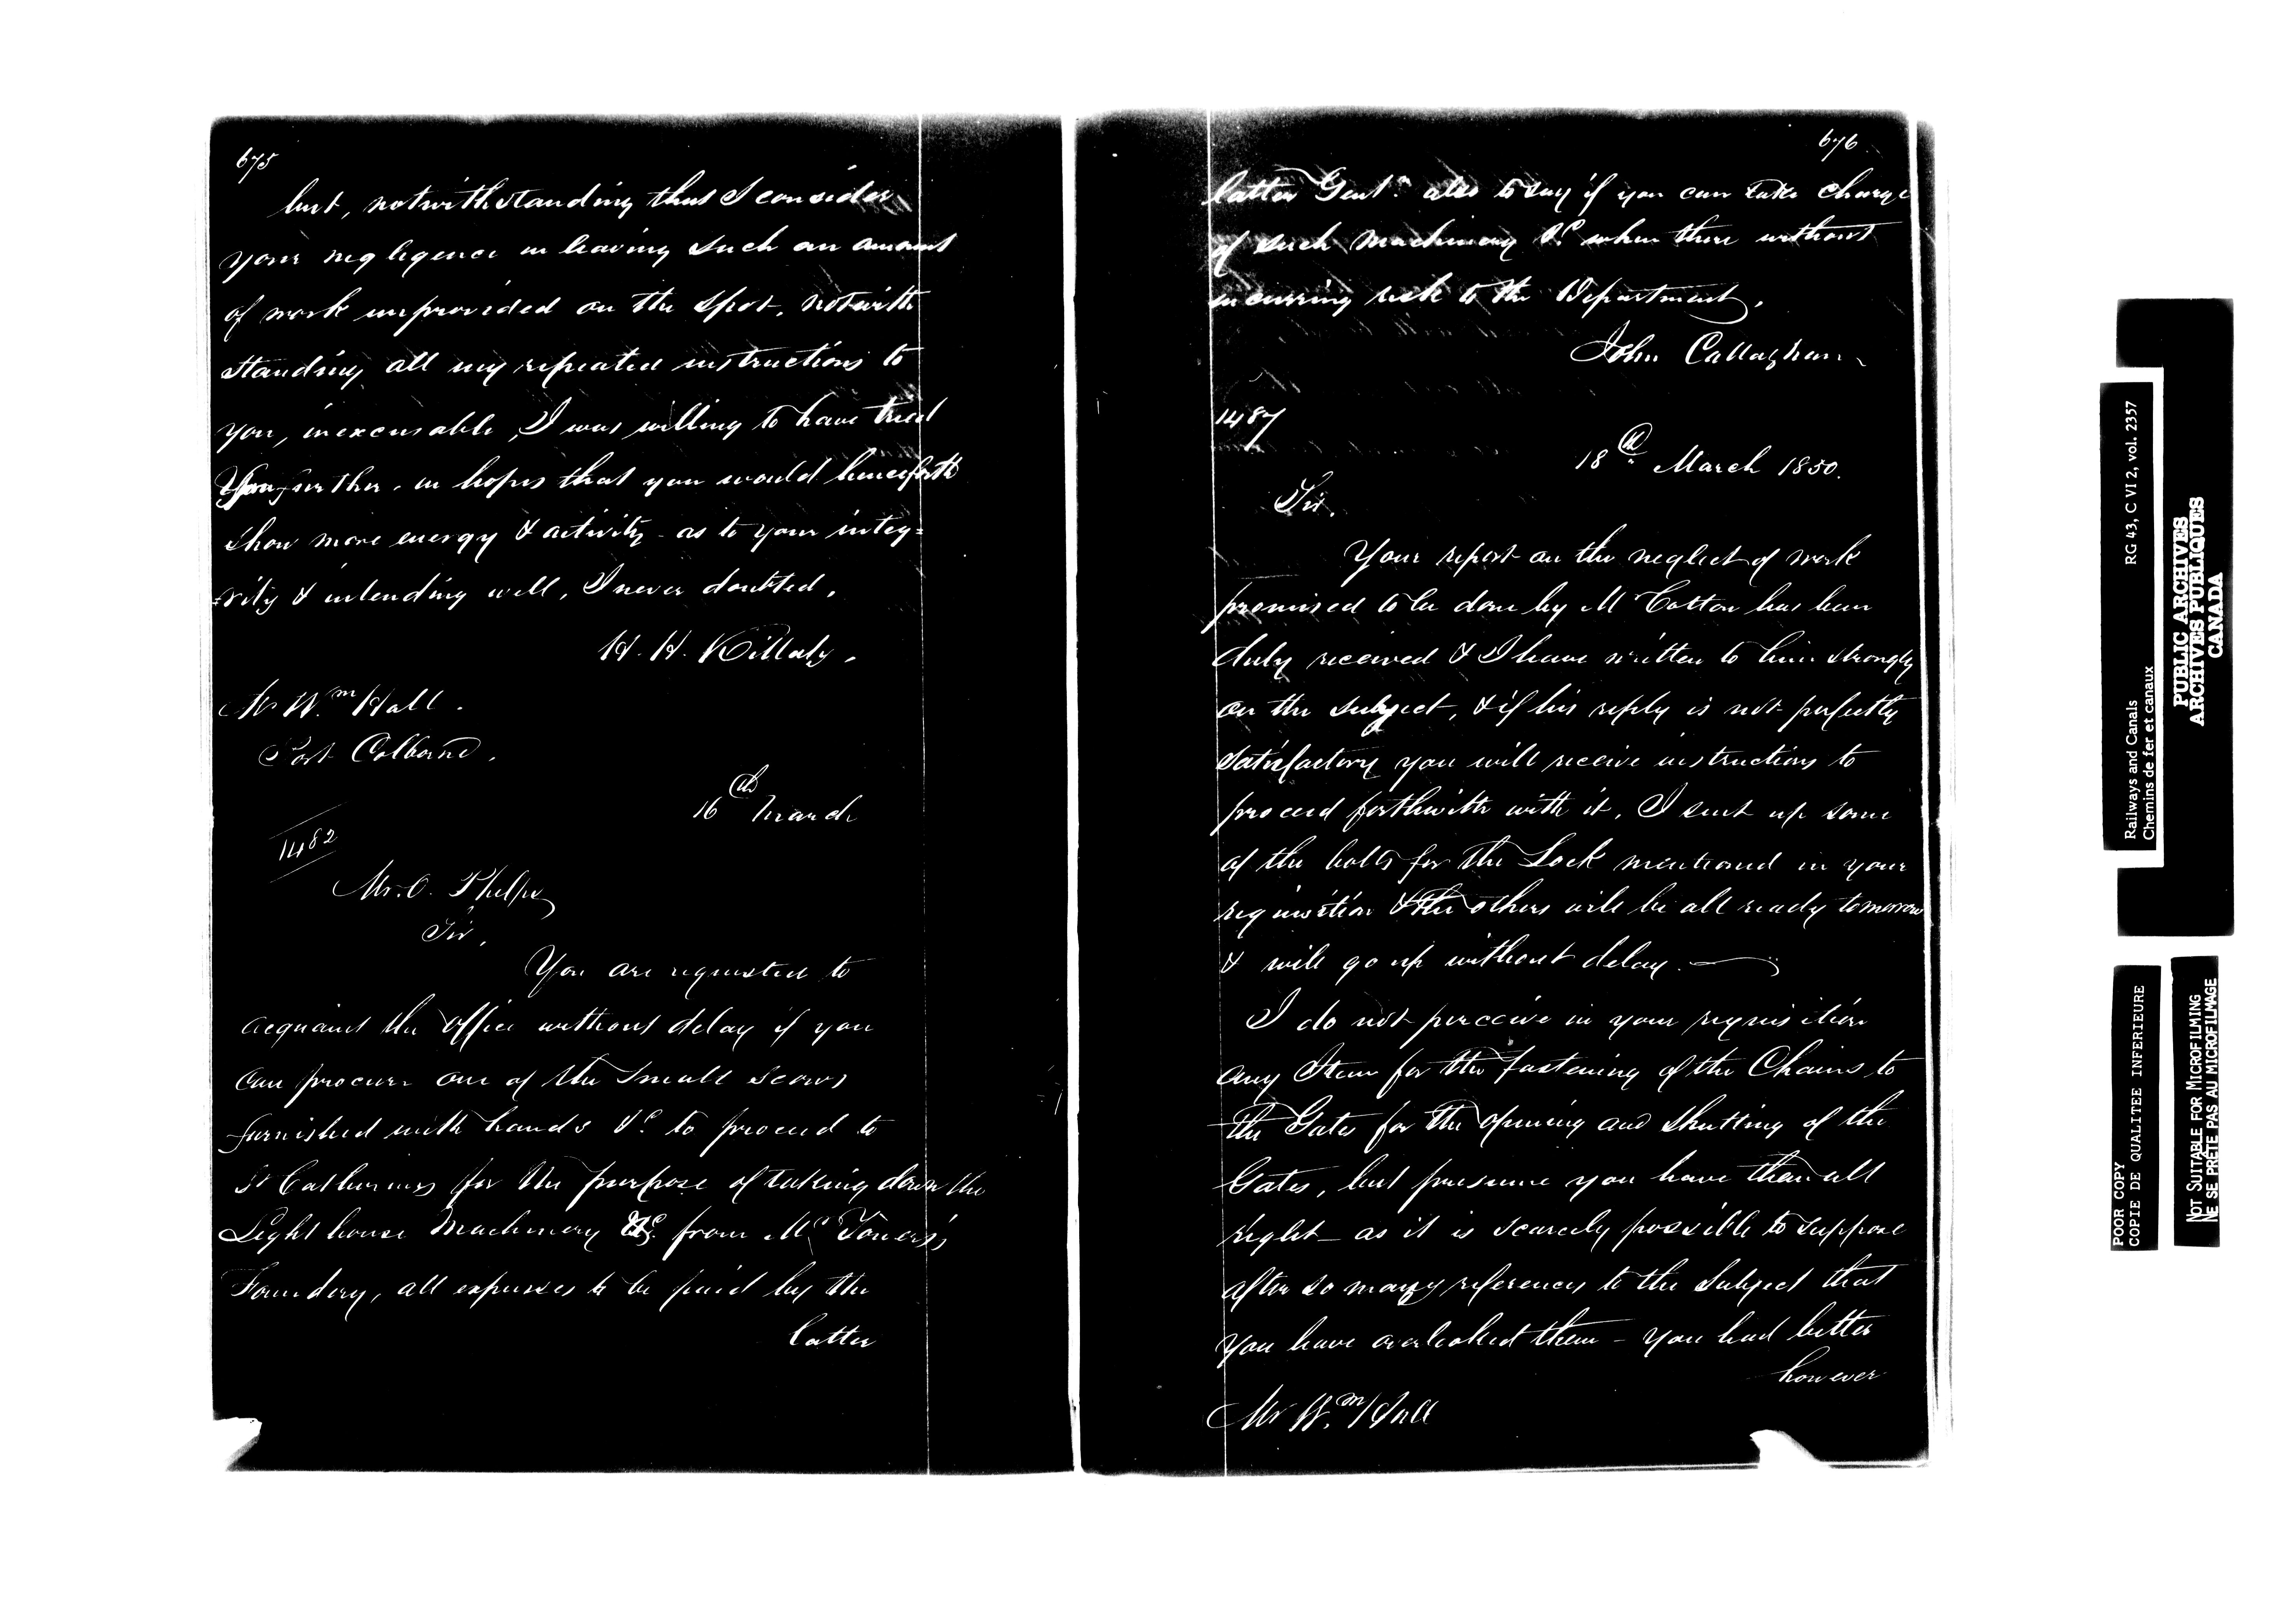 675
but, notwithstanding that I consider
your negligence in leaving such an amount
of work unprovided on the spot, notwith
standing all my repeated instructions to
you, inexcusable, I was willing to have tried
you further, in hopes that you would henceforth
show more energy & activity - as to your integ=
=rity & intending well, I never doubted.
H. H. Killaly.
Mr Wm Hall.
Port Colborne.
16th March
1482
Mr. O. Phelps
Sir,
You are requested to
acquaint the office without delay if you
can procure one of the small scows
furnished with hands &c to proceed to
St Catherines for the purpose of taking down the
Light house Machinery &c. from Mr Towers's
Foundery, all expenses to be paid by the
latter
676
latter Gentn. also to say if you can take charge
of such Machinery &c when there without
incurring risk to the Department.
John Callaghan
1487
18th March 1850.
Sir.
Your report on the neglect of work
promised to be done by M Cotton has been
duly received & I have written to him strongly
on the subject, & if his reply is not perfectly
satisfactory you will receive instructions to
proceed forthwith with it. I sent up some
of the bolts for the Lock mentioned in your
requisition & the others will be all ready tomorrow
& will go up without delay.
I do not perceive in your requisition
any Item for the fastening of the Chains to
the Gates for the opening and shutting of the
Gates, but presume you have them all
right - as it is scarcely possible to suppose
after so many references to the subject that
you have overlooked them - you had better
however
Mr Wm Hall
RG 43, C VI 2, vol. 2357
Railways and Canals
Chemins de fer et canaux
PUBLIC ARCHIVES
ARCHIVES PUBLIQUES
CANADA
POOR COPY
COPIE DE QUALITEE INFERIEURE
NOT SUITABLE FOR MICROFILMING
NE SE PRÊTE PAS AU MICROFILMAGE